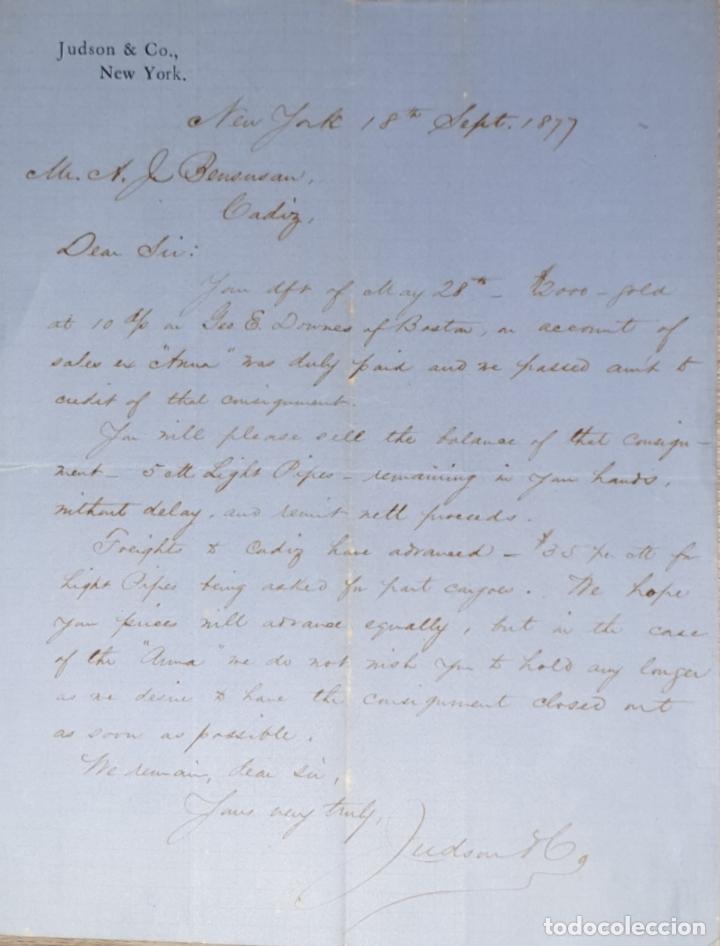 Judson & Co.,
New York.
New York 18th Sept. 1877
Mr. A. J. Bensusan,
Cadiz,
Dear Sir:
Your dft of May 28th - $2000 - gold
at 10 d/s on Geo E. Downes of Boston, on account of
sales ex "Anna" was duly paid and we passed am't to
credit of that consignment.
You will please sell the balance of that consign-
ment - 5 M Light Pipes - remaining in your hands,
without delay, and remit nett proceeds.
Freights to Cadiz have advanced - $35 per M for
Light Pipes being asked for part cargoes. We hope
your prices will advance equally, but in the case
of the "Anna" we do not wish you to hold any longer
as we desire to have the consignment closed out
as soon as possible.
We remain, dear sir,
Yours very truly,
Judson & Co
todocoleccion